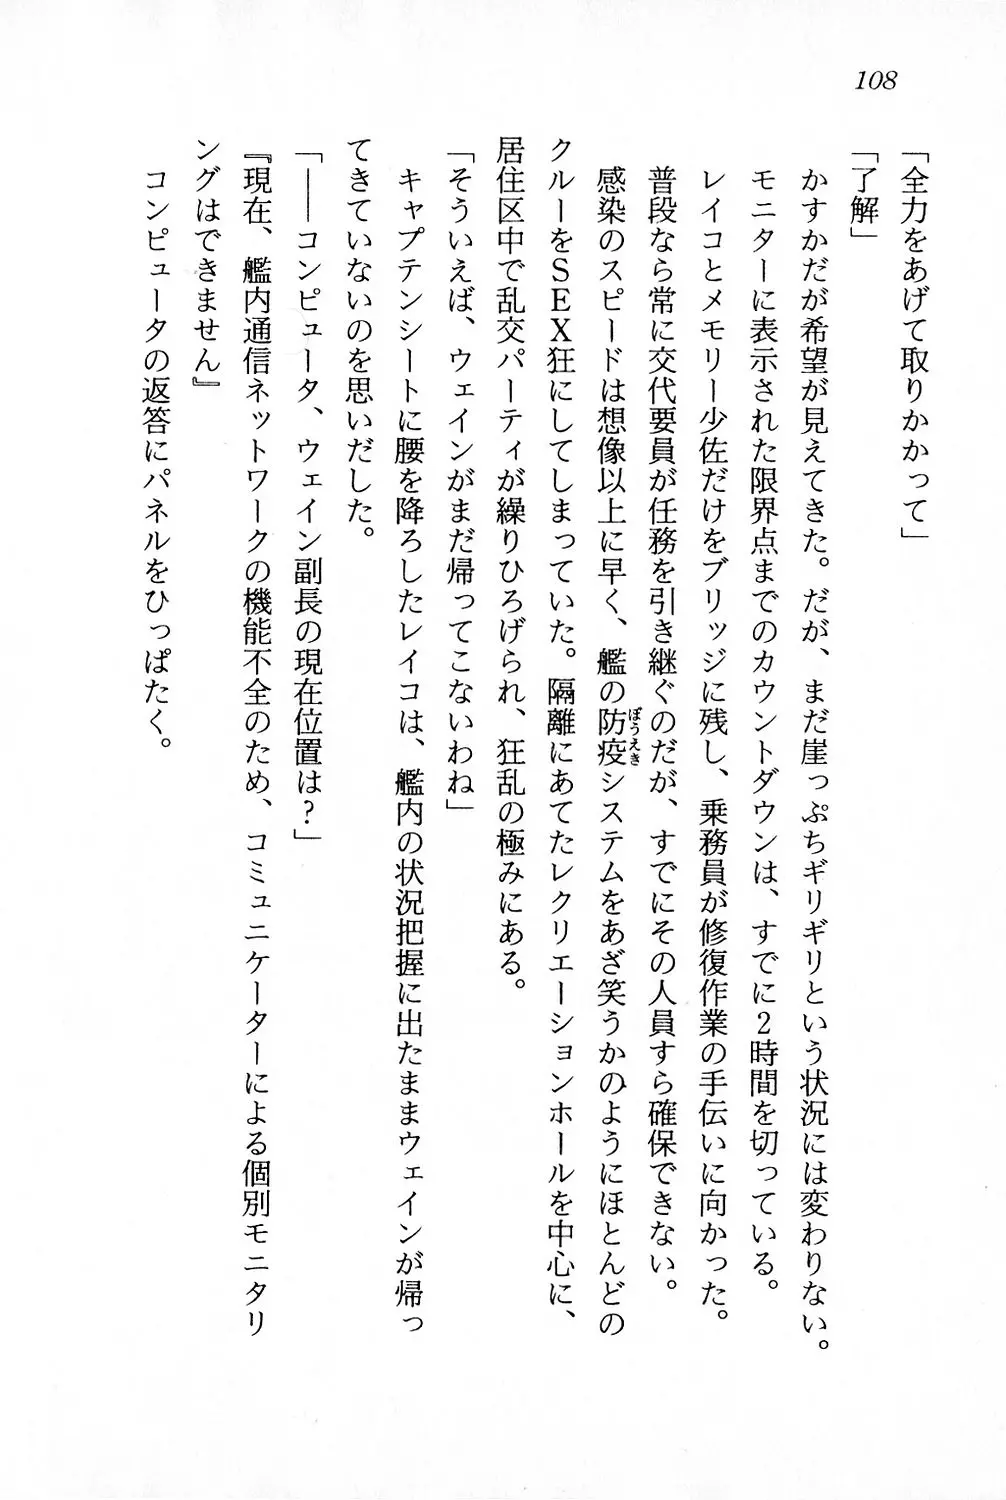 108
「全力をあげて取りかかって」
「了解」
　かすかだが希望が見えてきた。だが、まだ崖っぷちギリギリという状況には変わりない。
　モニターに表示された限界点までのカウントダウンは、すでに2時間を切っている。
　レイコとメモリー少佐だけをブリッジに残し、乗務員が修復作業の手伝いに向かった。
　普段なら常に交代要員が任務を引き継ぐのだが、すでにその人員すら確保できない。
　感染のスピードは想像以上に早く、艦の防疫ぼうえきシステムをあざ笑うかのようにほとんどの
クルーをＳＥＸ狂にしてしまっていた。隔離にあてたレクリエーションホールを中心に、
居住区中で乱交パーティが繰りひろげられ、狂乱の極みにある。
「そういえば、ウェインがまだ帰ってこないわね」
　キャプテンシートに腰を降ろしたレイコは、艦内の状況把握に出たままウェインが帰っ
てきていないのを思いだした。
「――コンピュータ、ウェイン副長の現在位置は？」
『現在、艦内通信ネットワークの機能不全のため、コミュニケーターによる個別モニタリ
ングはできません』
　コンピュータの返答にパネルをひっぱたく。